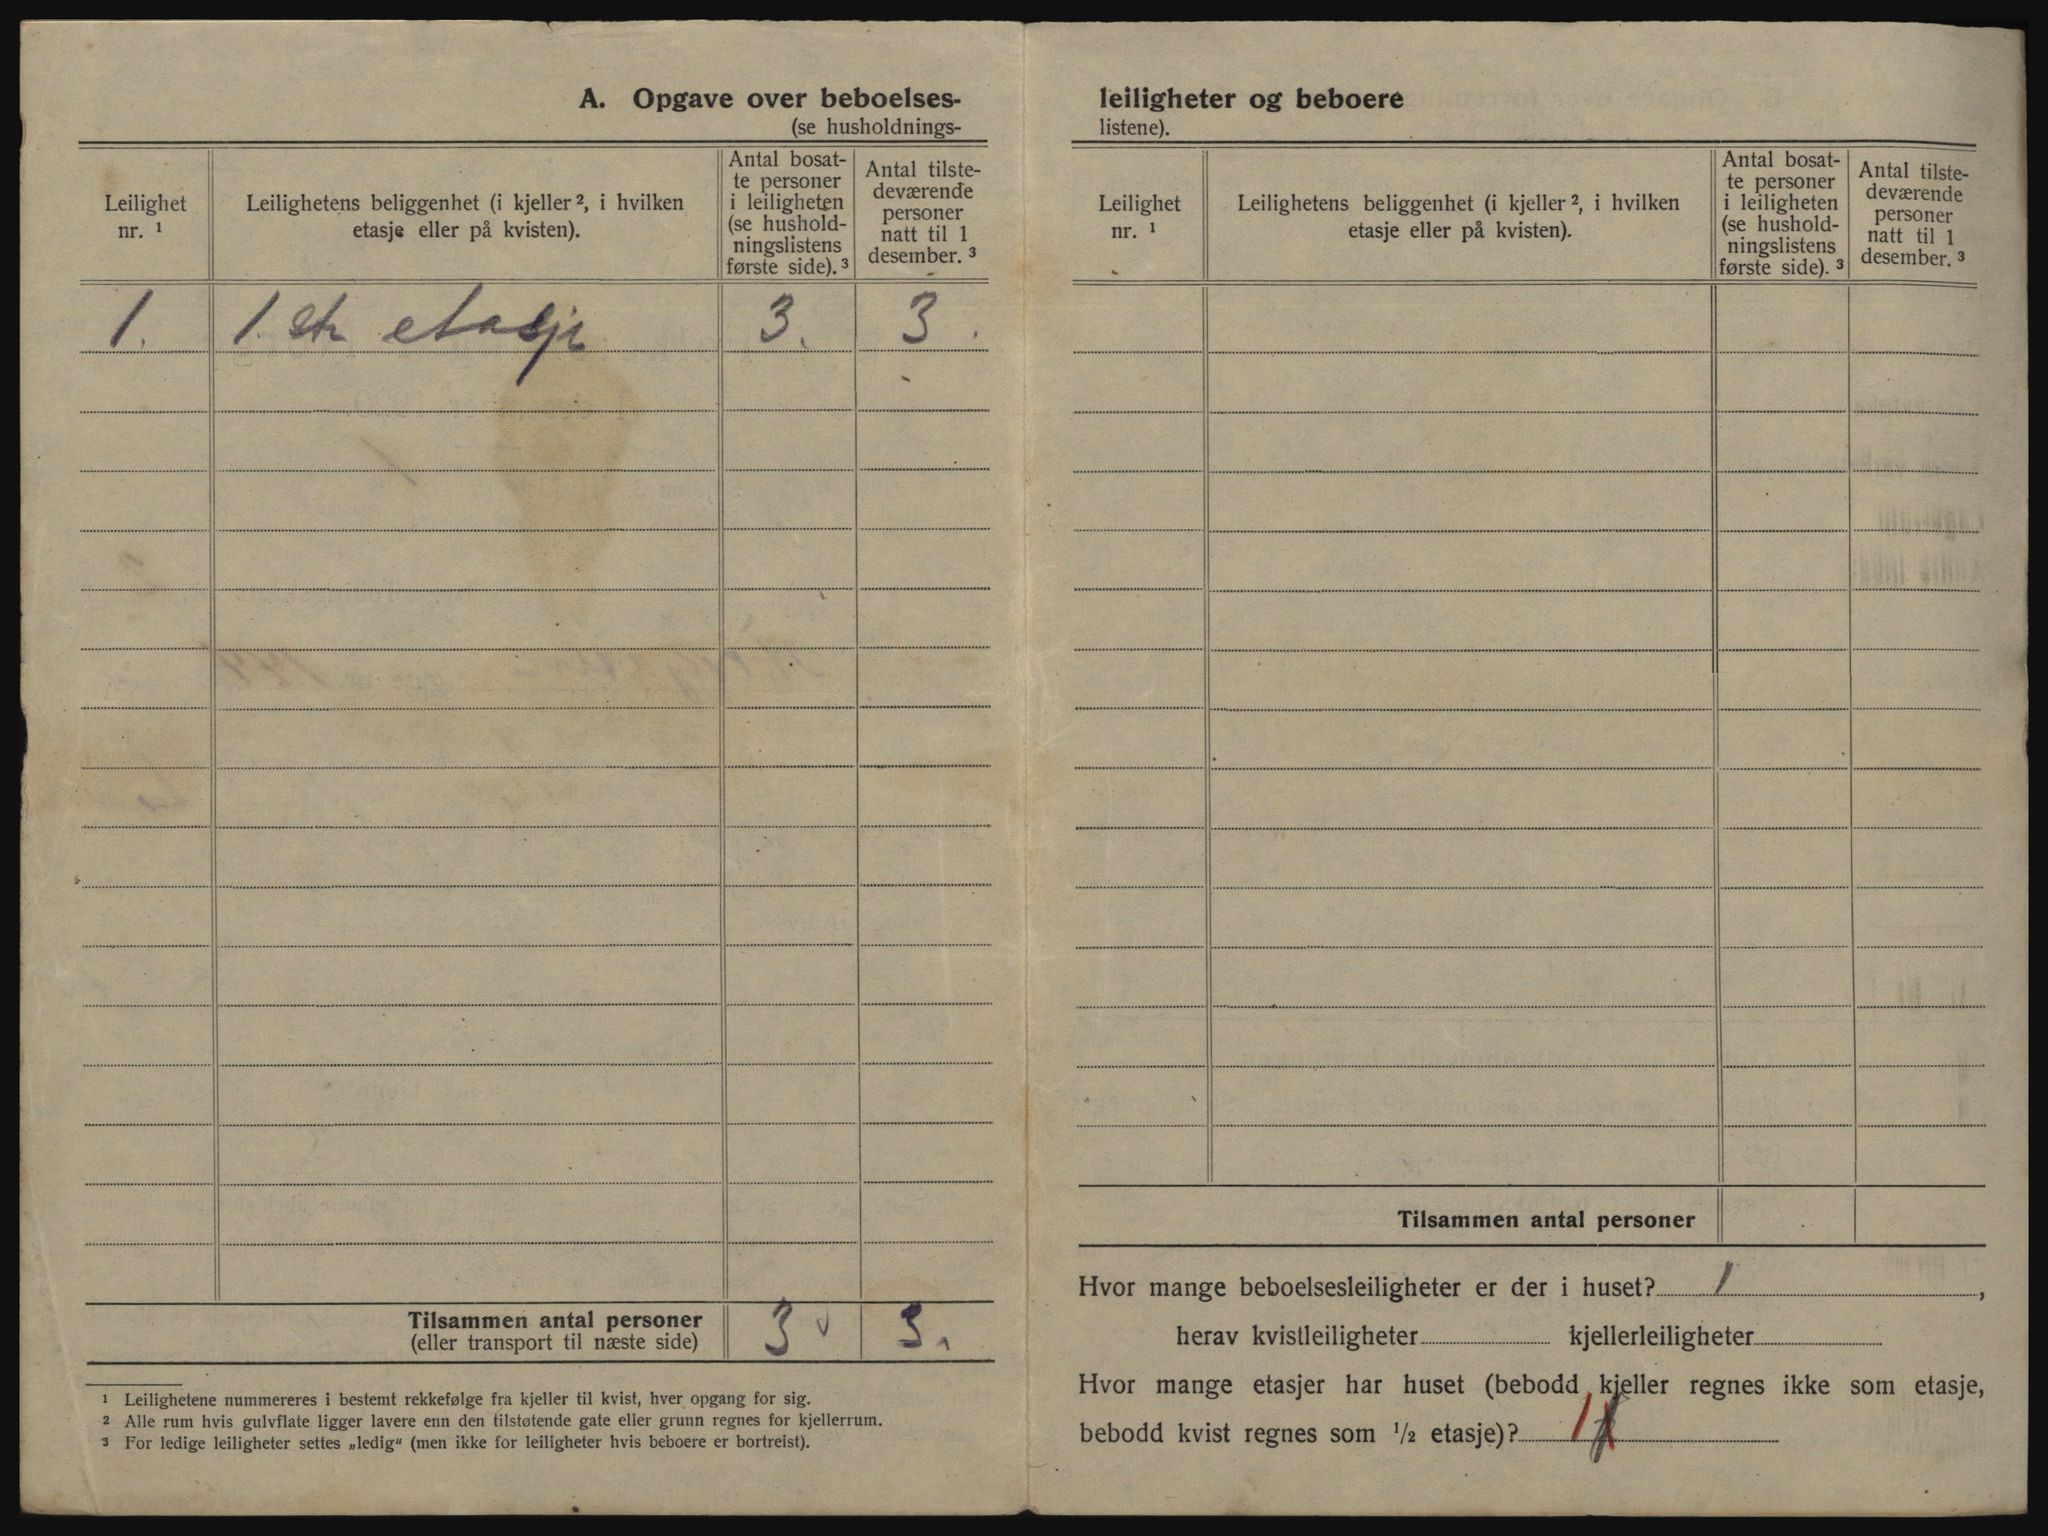 A. Opgave over beboelses-
(se husholdnings-
Leilighet
nr. ¹
Leilighetens beliggenhet (i kjeller ², i hvilken
etasje eller på kvisten).
Antal bosat-
te personer
i leiligheten
(se hushold-
ningslistens
første side). ³
Antal tilste-
deværende
personer
natt til 1
desember. ³
1. 1 ste etasje 3. 3.
Tilsammen antal personer 3 3.
(eller transport til næste side)
¹ Leilighetene nummereres i bestemt rekkefølge fra kjeller til kvist, hver opgang for sig.
² Alle rum hvis gulvflate ligger lavere enn den tilstøtende gate eller grunn regnes for kjellerrum.
³ For ledige leiligheter settes „ledig“ (men ikke for leiligheter hvis beboere er bortreist).
leiligheter og beboere
listene).
Leilighet
nr. ¹
Leilighetens beliggenhet (i kjeller ², i hvilken
etasje eller på kvisten).
Antal bosat-
te personer
i leiligheten
(se hushold-
ningslistens
første side). ³
Antal tilste-
deværende
personer
natt til 1
desember. ³
Tilsammen antal personer
Hvor mange beboelsesleiligheter er der i huset? 1,
herav kvistleiligheter kjellerleiligheter
Hvor mange etasjer har huset (bebodd kjeller regnes ikke som etasje,
bebodd kvist regnes som ½ etasje)? 1